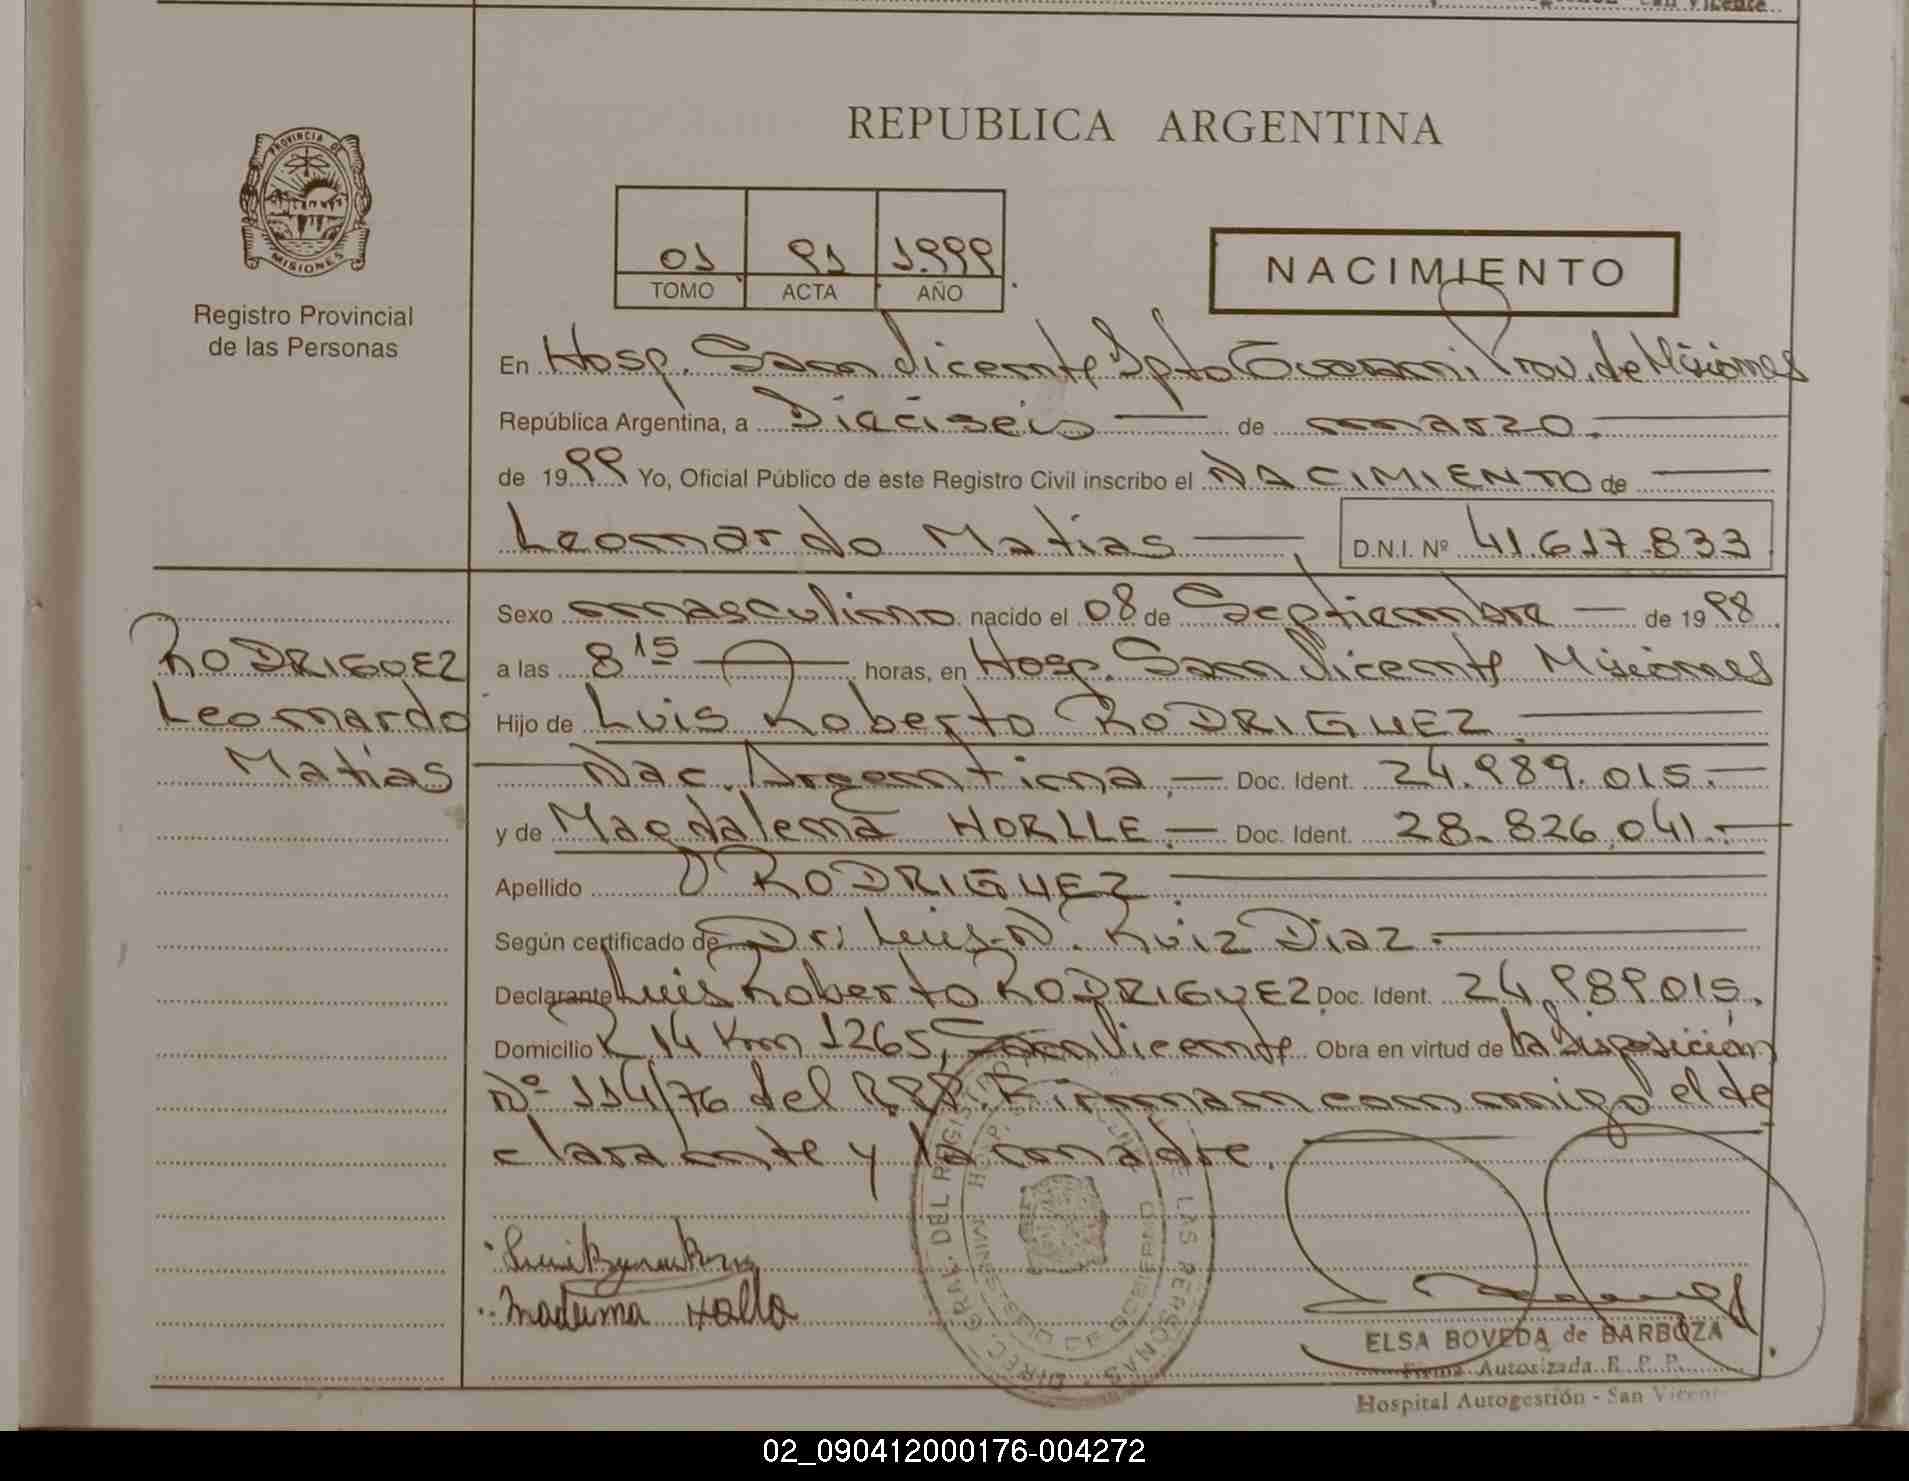 San Vicente
REPUBLICA ARGENTINA
PROVINCIA DE
MISIONES
Registro Provincial
de las Personas
01 91 1.999
TOMO ACTA AÑO
NACIMIENTO
En Hosp. San Vicente Dpto Guarani Prov. de Misiones
República Argentina, a Dieciseis de marzo.
de 1999 Yo, Oficial Público de este Registro Civil inscribo el NACIMIENTO de
Leonardo Matias D.N.I. Nº 41.617.833
Sexo masculino nacido el 08 de Septiembre de 1998
a las 8 15 horas, en Hosp. San Vicente Misiones
Hijo de Luis Roberto RODRIGUEZ
Nac. Argentina Doc. Ident. 24.989.015.
y de Magdalena HORLLE. Doc. Ident. 28.826.041.
Apellido RODRIGUEZ
Según certificado de Dr: Luis N. Ruiz Diaz.
Declarante Luis Roberto RODRIGUEZ Doc. Ident. 24.989.015.
Domicilio R 14 Km 1265, San Vicente Obra en virtud de la Disposición
Nº 114/76 del R.P.P. Firman conmigo el de
clarante y la madre.
RODRIGUEZ
Leonardo
Matias
DIREC. GRAL. DEL REGISTRO DE LAS PERSONAS
MINISTERIO DE GOBIERNO
ELSA BOVEDA de BARBOZA
Firma Autorizada R. P. P.
Hospital Autogestión - San Vicente
02_090412000176-004272